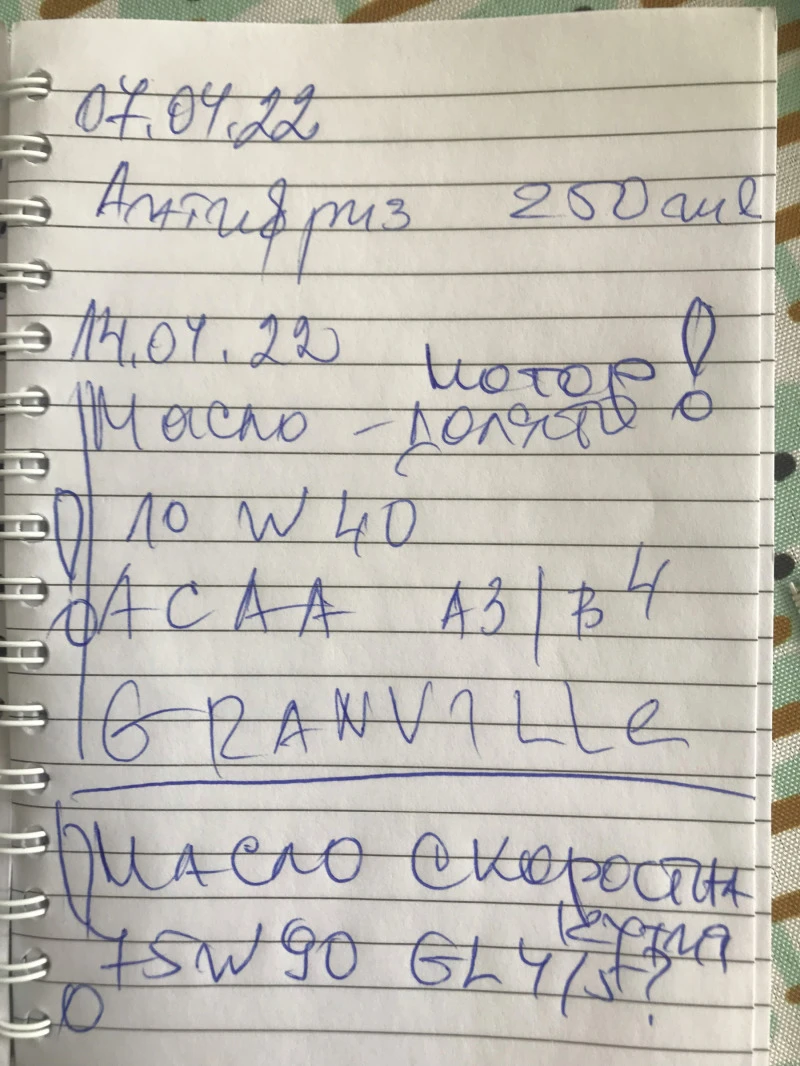 07.04.22
Антифриз 250 мл
14.04.22
мотор !
Масло - долято
! 10 W 40
ACAA A3/B4
GRANVILLE
! Масло скоростна
кутия
75W90 GL4/5?